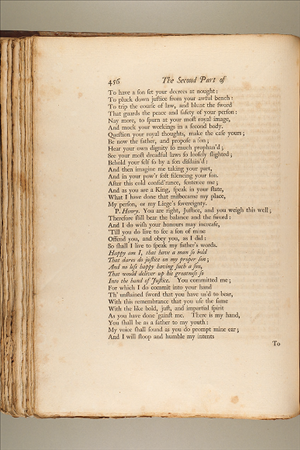 456 The Second Part of
To have a son set your decrees at nought:
To pluck down justice from your awful bench:
To trip the course of law, and blunt the sword
That guards the peace and safety of your person:
Nay more, to spurn at your most royal image,
And mock your workings in a second body.
Question your royal thoughts, make the case yours;
Be now the father, and propose a son;
Hear your own dignity so much prophan'd;
See your most dreadful laws so loosely slighted;
Behold your self so by a son disdain'd:
And then imagine me taking your part,
And in your pow'r soft silencing your son.
After this cold consid'rance, sentence me;
And as you are a King, speak in your state,
What I have done that misbecame my place,
My person, or my Liege's sovereignty.
P. Henry. You are right, Justice, and you weigh this well;
Therefore still bear the balance and the sword:
And I do wish your honours may increase,
'Till you do live to see a son of mine
Offend you, and obey you, as I did:
So shall I live to speak my father's words.
Happy am I, that have a man so bold
That dares do justice on my proper son;
And no less happy having such a son,
That would deliver up his greatness so
Into the hand of Justice. You committed me;
For which I do commit into your hand
Th' unstained sword that you have us'd to bear,
With this remembrance that you use the same
With the like bold, just, and impartial spirit
As you have done 'gainst me. There is my hand,
You shall be as a father to my youth:
My voice shall sound as you do prompt mine ear;
And I will stoop and humble my intents
To